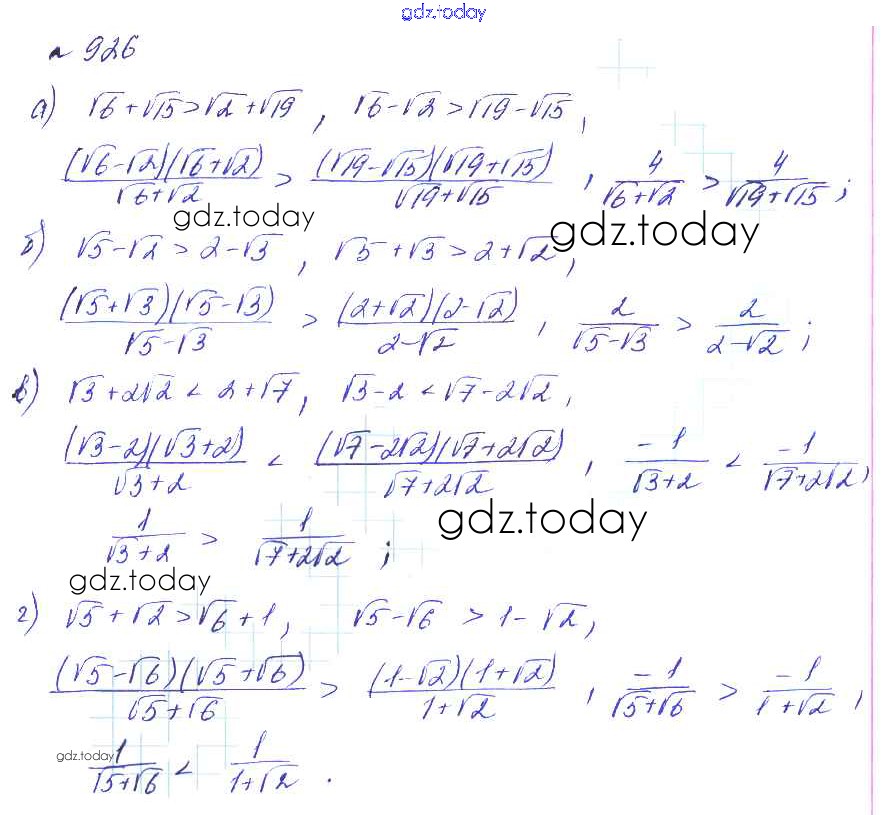 gdz.today
№ 926
а) √6 + √15 > √2 + √19 , √6 - √2 > √19 - √15 ,
(√6-√2)(√6+√2)/(√6+√2) > (√19-√15)(√19+√15)/(√19+√15) , 4/(√6+√2) > 4/(√19+√15) ;
gdz.today
gdz.today
б) √5 - √2 > 2 - √3 , √5 + √3 > 2 + √2 ,
(√5+√3)(√5-√3)/(√5-√3) > (2+√2)(2-√2)/(2-√2) , 2/(√5-√3) > 2/(2-√2) ;
в) √3 + 2√2 < 2 + √7 , √3 - 2 < √7 - 2√2 ,
(√3-2)(√3+2)/(√3+2) < (√7-2√2)(√7+2√2)/(√7+2√2) , -1/(√3+2) < -1/(√7+2√2) ,
gdz.today
1/(√3+2) > 1/(√7+2√2) ;
gdz.today
г) √5 + √2 > √6 + 1 , √5 - √6 > 1 - √2 ,
(√5-√6)(√5+√6)/(√5+√6) > (1-√2)(1+√2)/(1+√2) , -1/(√5+√6) > -1/(1+√2) ,
gdz.today
1/(√5+√6) < 1/(1+√2) .